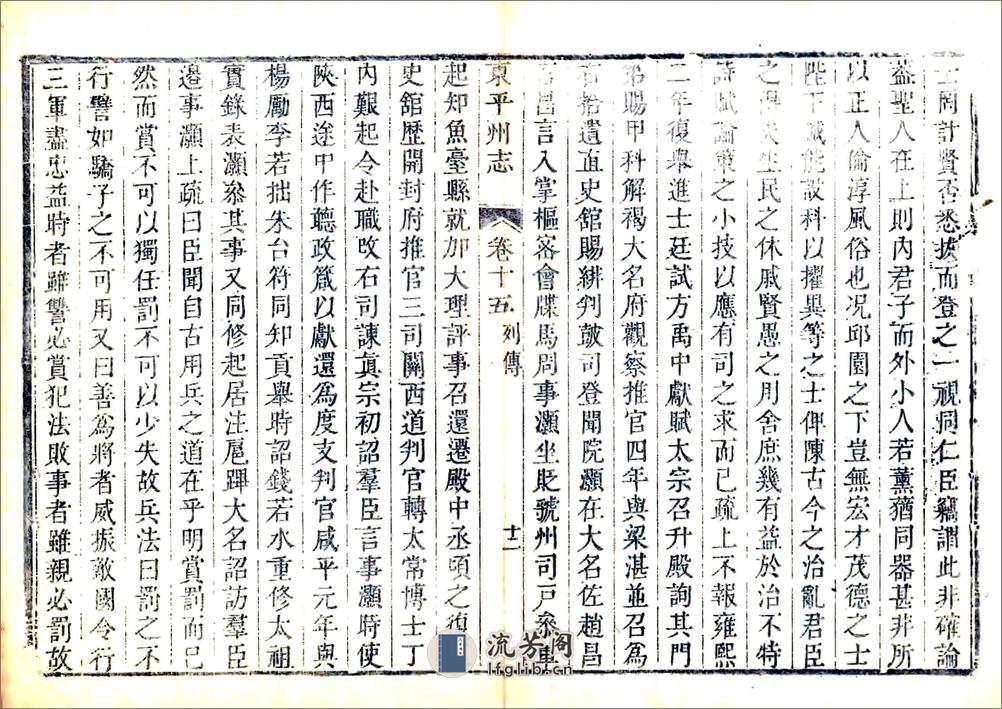 上罔計賢否悉拔而登之一視同仁臣竊謂此非確論
葢聖人在上則內君子而外小人若薰蕕同器甚非所
以正人倫淳風俗也况邱園之下豈無宏才茂德之士
陛下誠能設科以擢異等之士俾陳古今之治亂君臣
之得失生民之休戚賢愚之用舍庶幾有益於治不特
詩賦論策之小技以應有司之求而已疏上不報雍熙
二年復舉進士廷試方禹中獻賦太宗召升殿詢其門
第賜甲科解褐大名府觀察推官四年與梁湛並召爲
右拾遺直史舘賜緋判鼓司登聞院顥在大名佐趙昌
言昌言入掌樞密會牒馬周事灝坐貶虢州司戸叅軍
東平州志 卷十五 列傳 十二
起知魚臺縣就加大理評事召還遷殿中丞頃之復直
史舘歷開封府推官三司關西道判官轉太常博士丁
內艱起令赴職改右司諫眞宗初詔羣臣言事灝時使
陝西途中作聽政箴以獻還爲度支判官咸平元年與
楊勵李若拙朱台符同知貢舉時詔錢若水重修太祖
實錄表灝叅其事又同修起居注扈蹕大名詔訪羣臣
邊事灝上疏曰臣聞自古用兵之道在乎明賞罰而已
然而賞不可以獨任罰不可以少失故兵法曰罰之不
行譬如驕子之不可用又曰善爲將者威振敵國令行
三軍盡忠益時者雖讐必賞犯法敗事者雖親必罰故
流芳阁
lfglib.cn